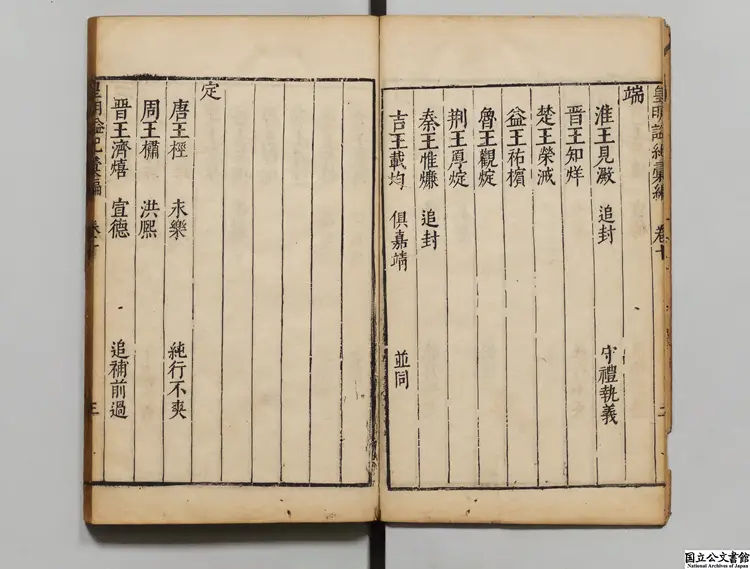 皇明謚紀彙編 卷十 二
端
淮王見濈 追封 守禮執義
晋王知烊
楚王榮㳦
益王祐檳
魯王觀
荆王厚
秦王惟 追封
吉王載均 俱嘉靖 並同
定
唐王桱 永樂 純行不爽
周王橚 洪熙
晋王濟熺 宣德 追補前過
皇明謚紀彙編 卷十 三
国立公文書館
National Archives of Japan